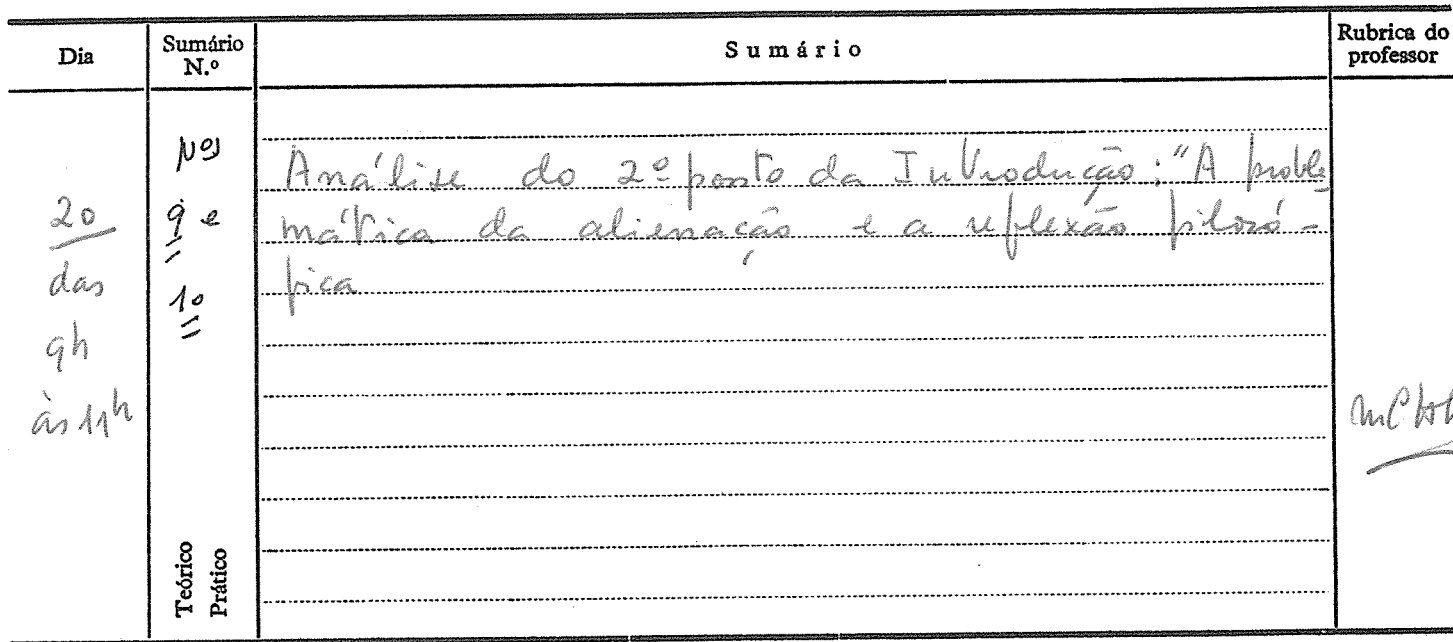 Dia
Sumário N.º
Sumário
Rubrica do professor
20
das
9h
às 11h
Nos
9 e
10
Teórico
Prático
Análise do 2º ponto da Introdução: "A proble
mática da alienação e a reflexão filosó-
fica